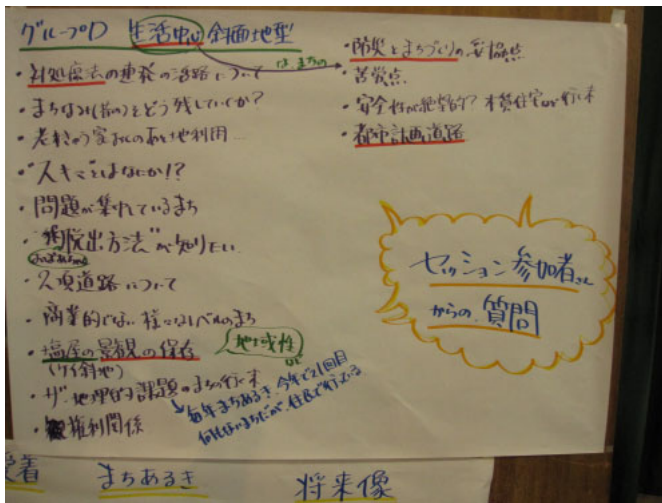 グループD 生活中心 斜面地型
・対処療法の連発の活路について
・まちなみ(昔の)をどう残していくか?
・老朽の家のあと地利用…
・"スキマ"とはなにか!?
・問題が集中しているまち
・"脱出方法"が知りたい
・2項道路について
・商業的でない様になレベルのまち
・塩屋の景観の保存
地域性
・ザ・地理的課題のまちの行末
毎年まちあるき、今年で21回目
何もないまちだが、住民で行っている
・権利関係
は まちの
・防災とまちづくりの妥協点
・苦労点
・安全性が絶望的? 木賃住宅の行末
・都市計画道路
セッション参加者さん
からの質問
着
まちあるき
将来像